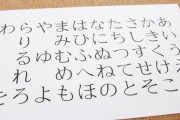 あいうえお
かきくけこ
さしすせそ
たちつてと
なにぬねの
はひふへほ
まみむめも
やゆよ
らりるれろ
わを